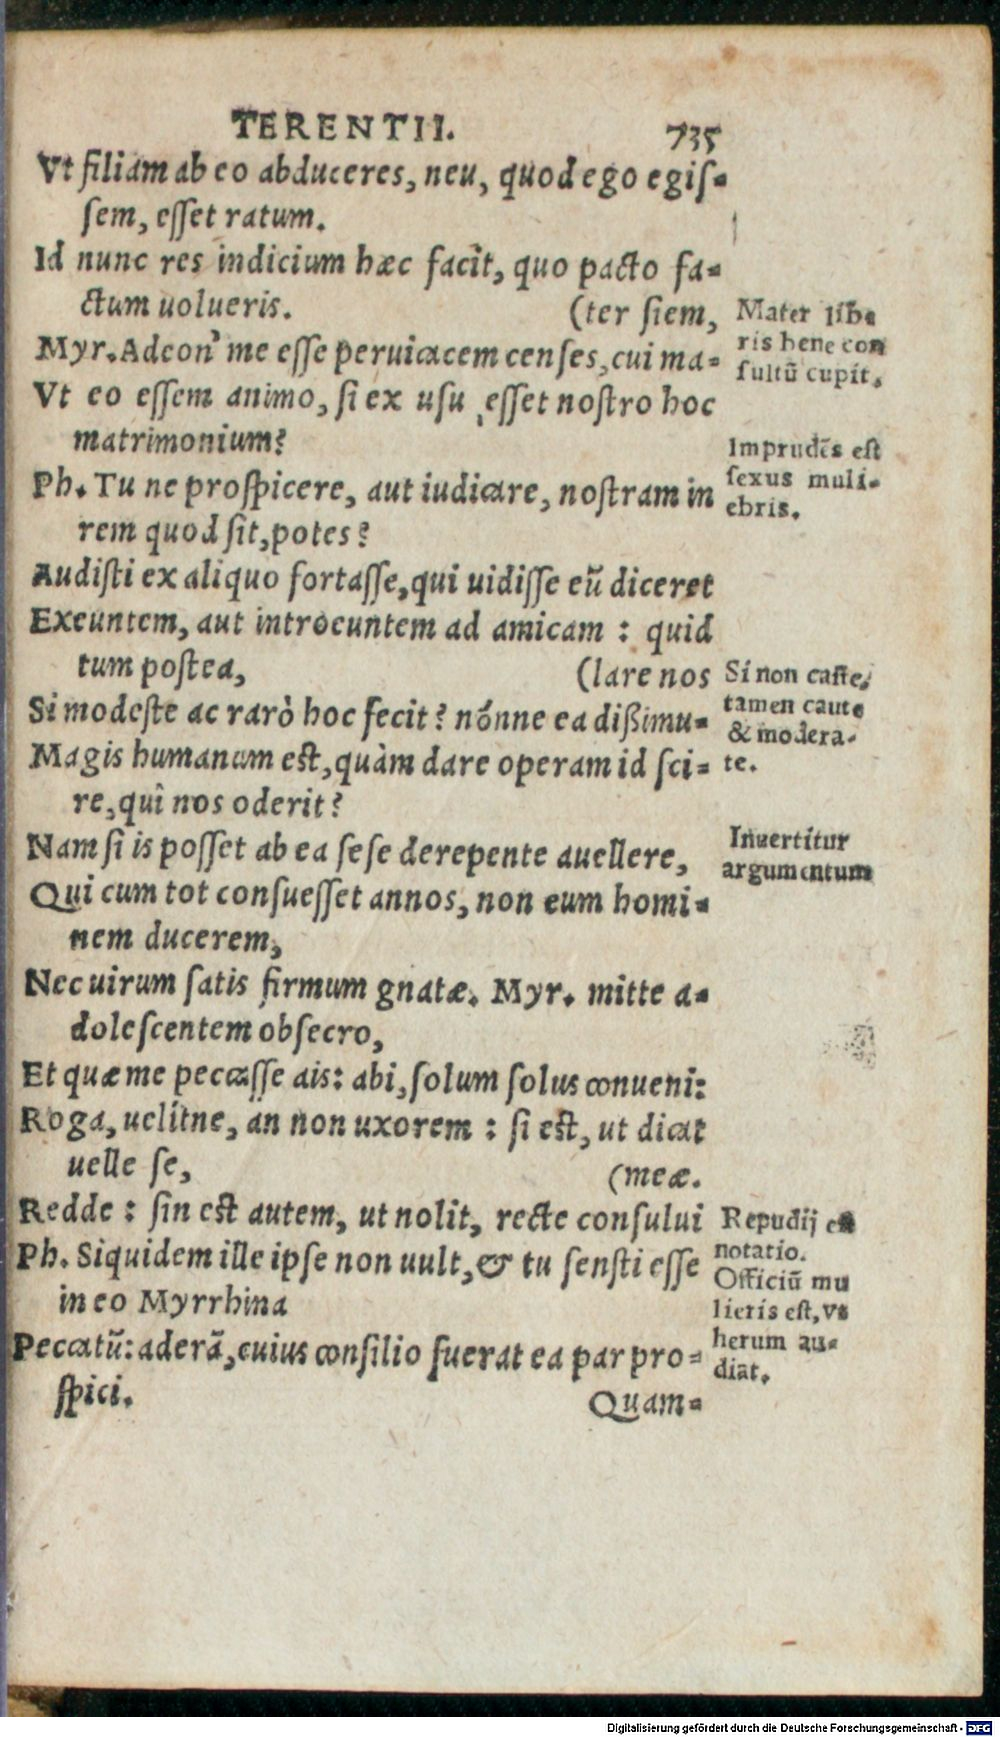 TERENTII. 735
Vt filiam ab eo abduceres, neu, quod ego egiſ-
ſem, eſſet ratum.
Id nunc res indicium hæc facit, quo pacto fa-
ctum uolueris. (ter ſiem,
Myr. Adeon' me eſſe peruicacem cenſes, cui ma-
Vt eo eſſem animo, ſi ex uſu eſſet noſtro hoc
matrimonium?
Ph. Tu ne proſpicere, aut iudicare, noſtram in
rem quod ſit, potes?
Audiſti ex aliquo fortaſſe, qui uidiſſe eũ diceret
Exeuntem, aut introeuntem ad amicam : quid
tum poſtea, (lare nos
Si modeſte ac rarò hoc fecit? nónne ea dißimu-
Magis humanum eſt, quàm dare operam id ſci-
re, qui nos oderit?
Nam ſi is poſſet ab ea ſeſe derepente auellere,
Qui cum tot conſueſſet annos, non eum homi-
nem ducerem,
Nec uirum ſatis firmum gnatæ. Myr. mitte a-
doleſcentem obſecro,
Et quæ me peccaſſe ais: abi, ſolum ſolus conueni:
Roga, uelitne, an non uxorem : ſi eſt, ut dicat
uelle ſe, (meæ.
Redde : ſin eſt autem, ut nolit, recte conſului
Ph. Siquidem ille ipſe non uult, & tu ſenſti eſſe
in eo Myrrhina
Peccatũ: aderã, cuius conſilio fuerat ea par pro-
ſpici. Quam-
Mater libe
ris bene con
ſultũ cupit.
Imprudẽs eſt
ſexus muli-
ebris.
Si non caſte,
tamen caute
& modera-
te.
Inuertitur
argumentum
Repudij
notatio.
Officiũ mu
lieris eſt, vt
herum au-
diat.
Digitalisierung gefördert durch die Deutsche Forschungsgemeinschaft - DFG